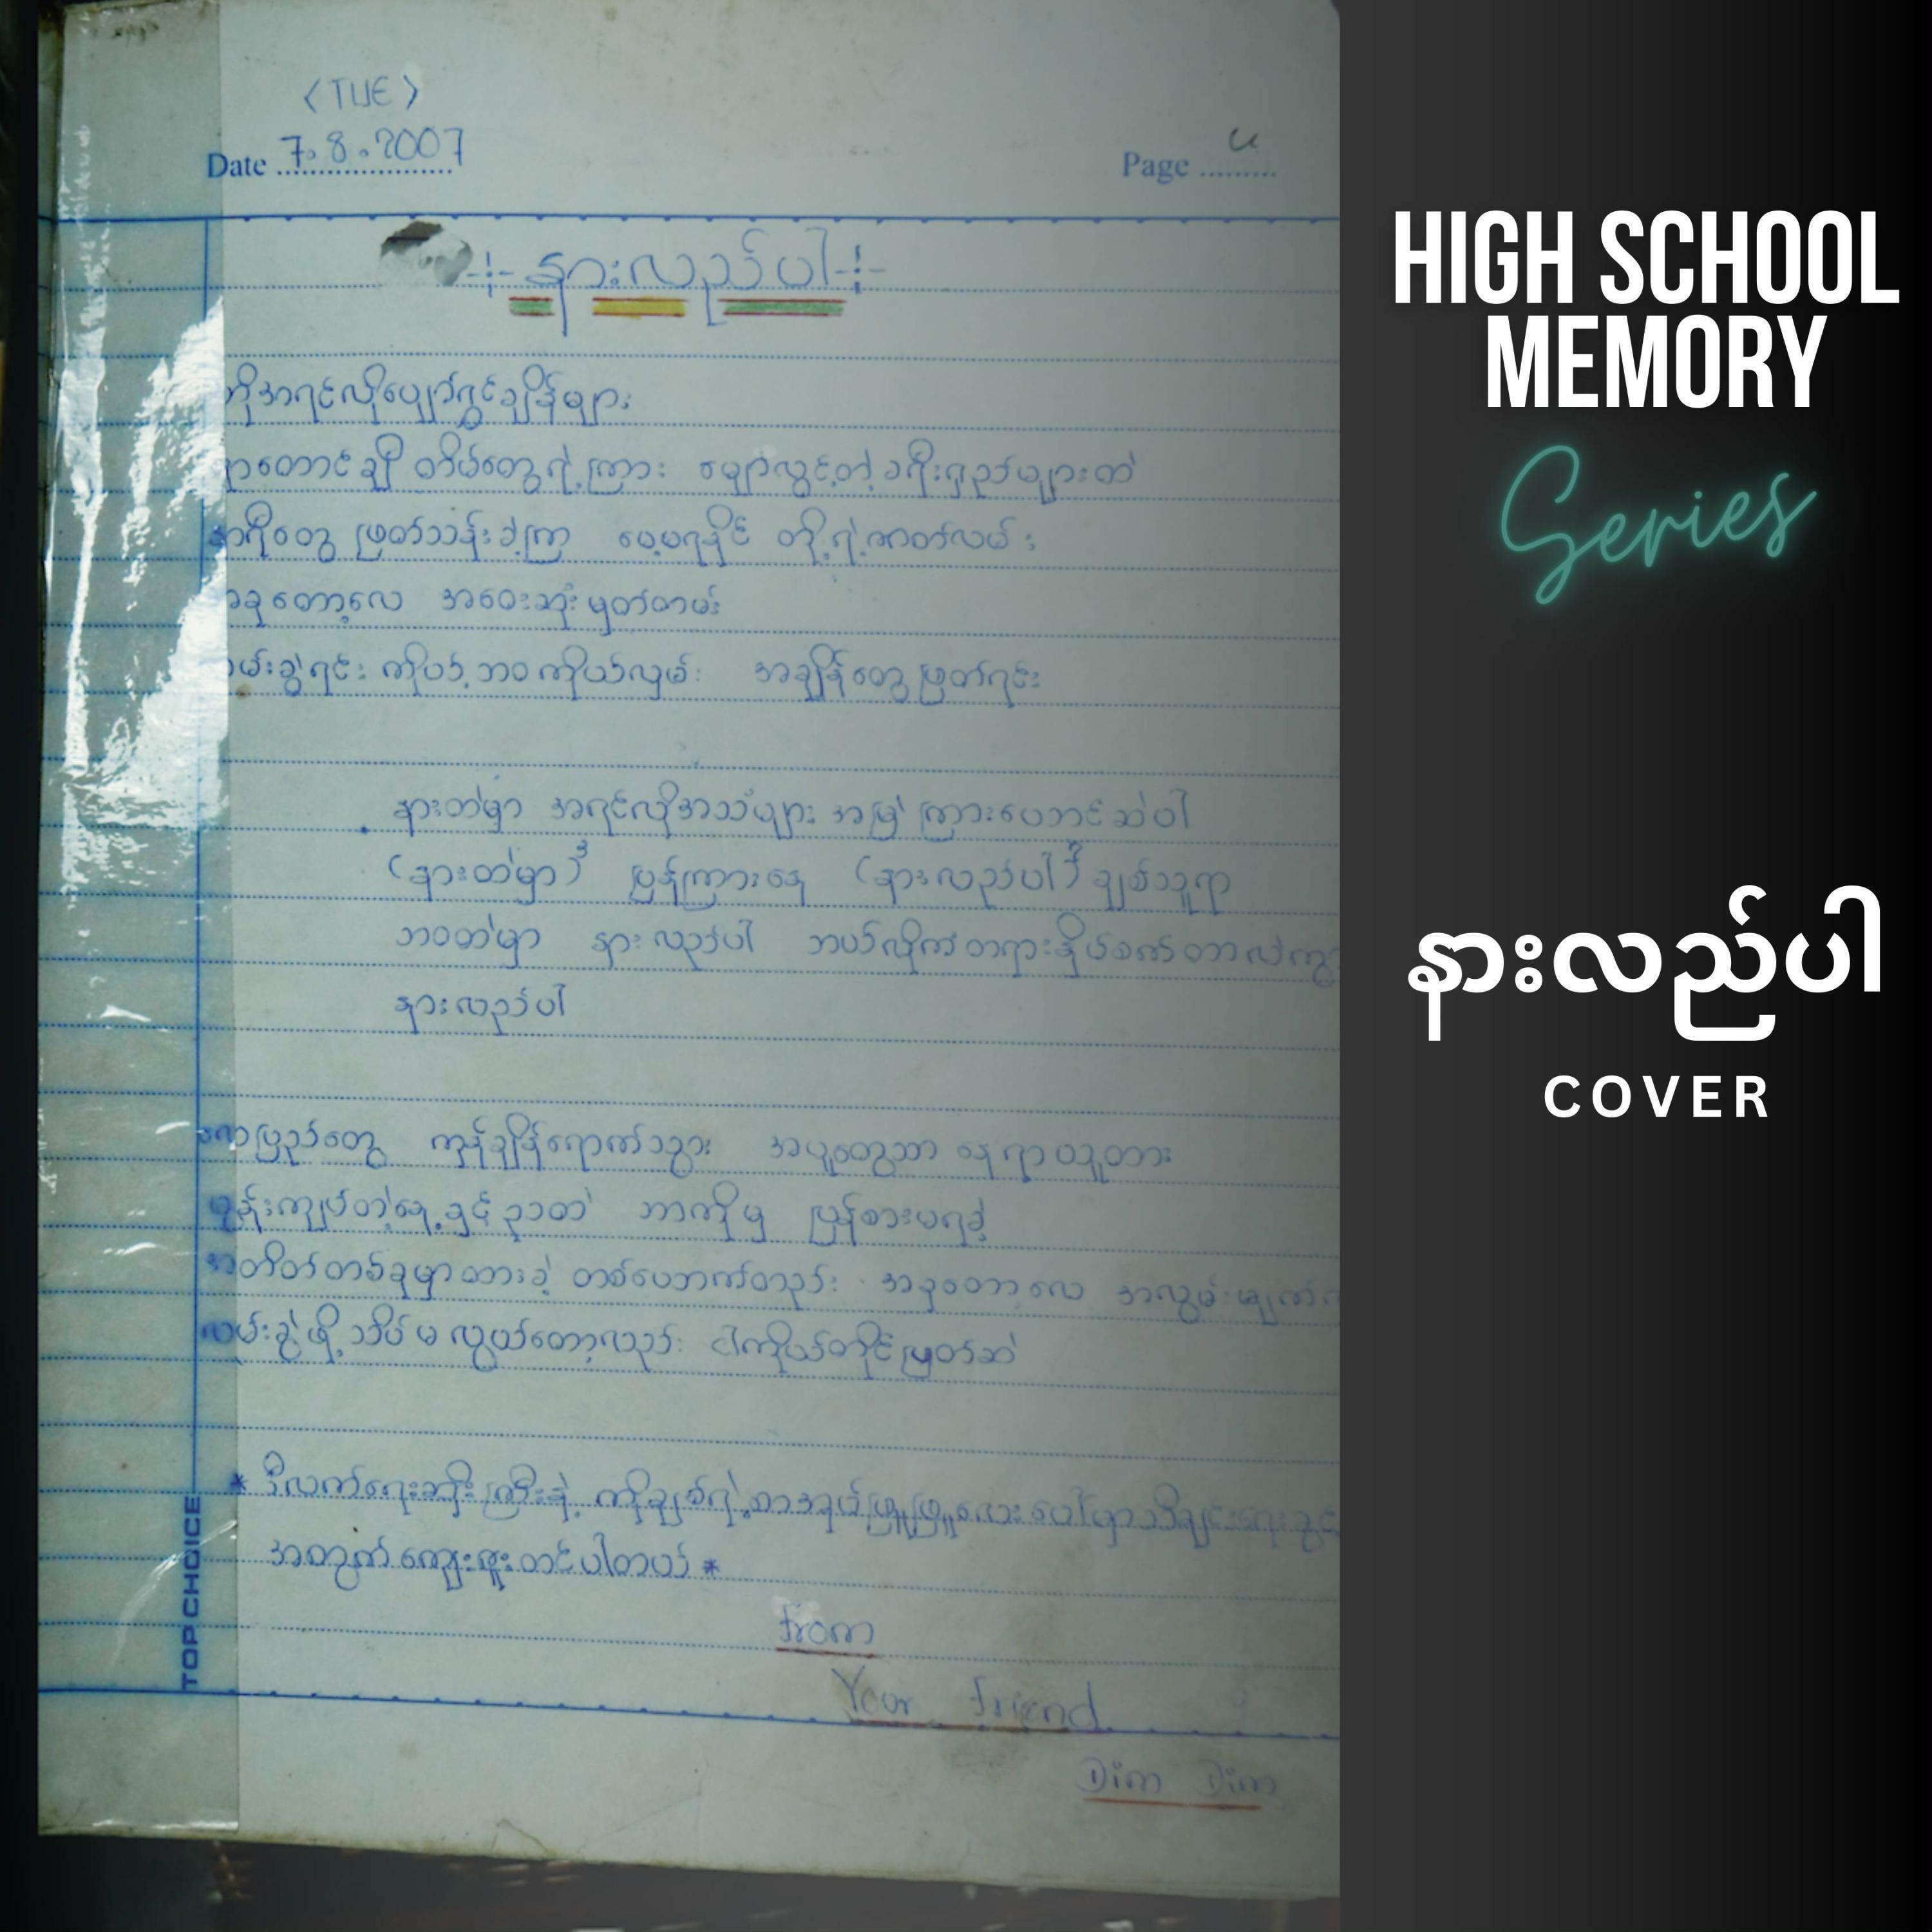 <TUE>
Date 7.8.2007
Page
-:- နားလည်ပါ -:-
အရင်လိုပျော်ရွှင်ချိန်များ
တောင်ချို တိမ်တွေရဲ့ကြား မျောလွင့်တဲ့ခရီးရှည်များထဲ
နာရီတွေ ဖြတ်သန်းခဲ့ကြ မေ့မရနိုင် တို့ရဲ့ဇာတ်လမ်း
အခုတော့လေ အဝေးဆုံးမှတ်တမ်း
ကိုယ့်ဘဝကိုယ်လှမ်း အချိန်တွေဖြတ်ရင်း
နားထဲမှာ အရင်လိုအသံများ အမြဲကြားယောင်ဆဲပါ
(နားထဲမှာ)³ ပြန်ကြားနေ (နားလည်ပါ)³ ချစ်သူရာ
ဘဝထဲမှာ နားလည်ပါ ဘယ်လိုကံတရားနှိပ်စက်တာလဲကွာ
နားလည်ပါ
ကုန်ချိန်ရောက်သွား အပူတွေသာ နေရာယူထား
မွန်းကျပ်တဲ့နေ့ရွှင်ဥသထဲ ဘာကိုမှ ပြန်စားမရခဲ့
အတိတ်တစ်ခုမှာထားခဲ့ တစ်ယောက်တည်း အခုတော့လေ
လွမ်းခွဲဖို့သိပ်မလွယ်တော့လည်း ငါကိုယ်တိုင်မြတ်ဆဲ
* ဒီလက်ရေးဆိုးကြီးနဲ့ ကိုချစ်ရဲ့စာအုပ်ဖြူဖြူလေးပေါ်မှာသီချင်းရေးခွင့်
အတွက်ကျေးဇူးတင်ပါတယ် *
from
Your friend
Dim Dim
TOP CHOICE
HIGH SCHOOL
MEMORY
Series
နားလည်ပါ
COVER